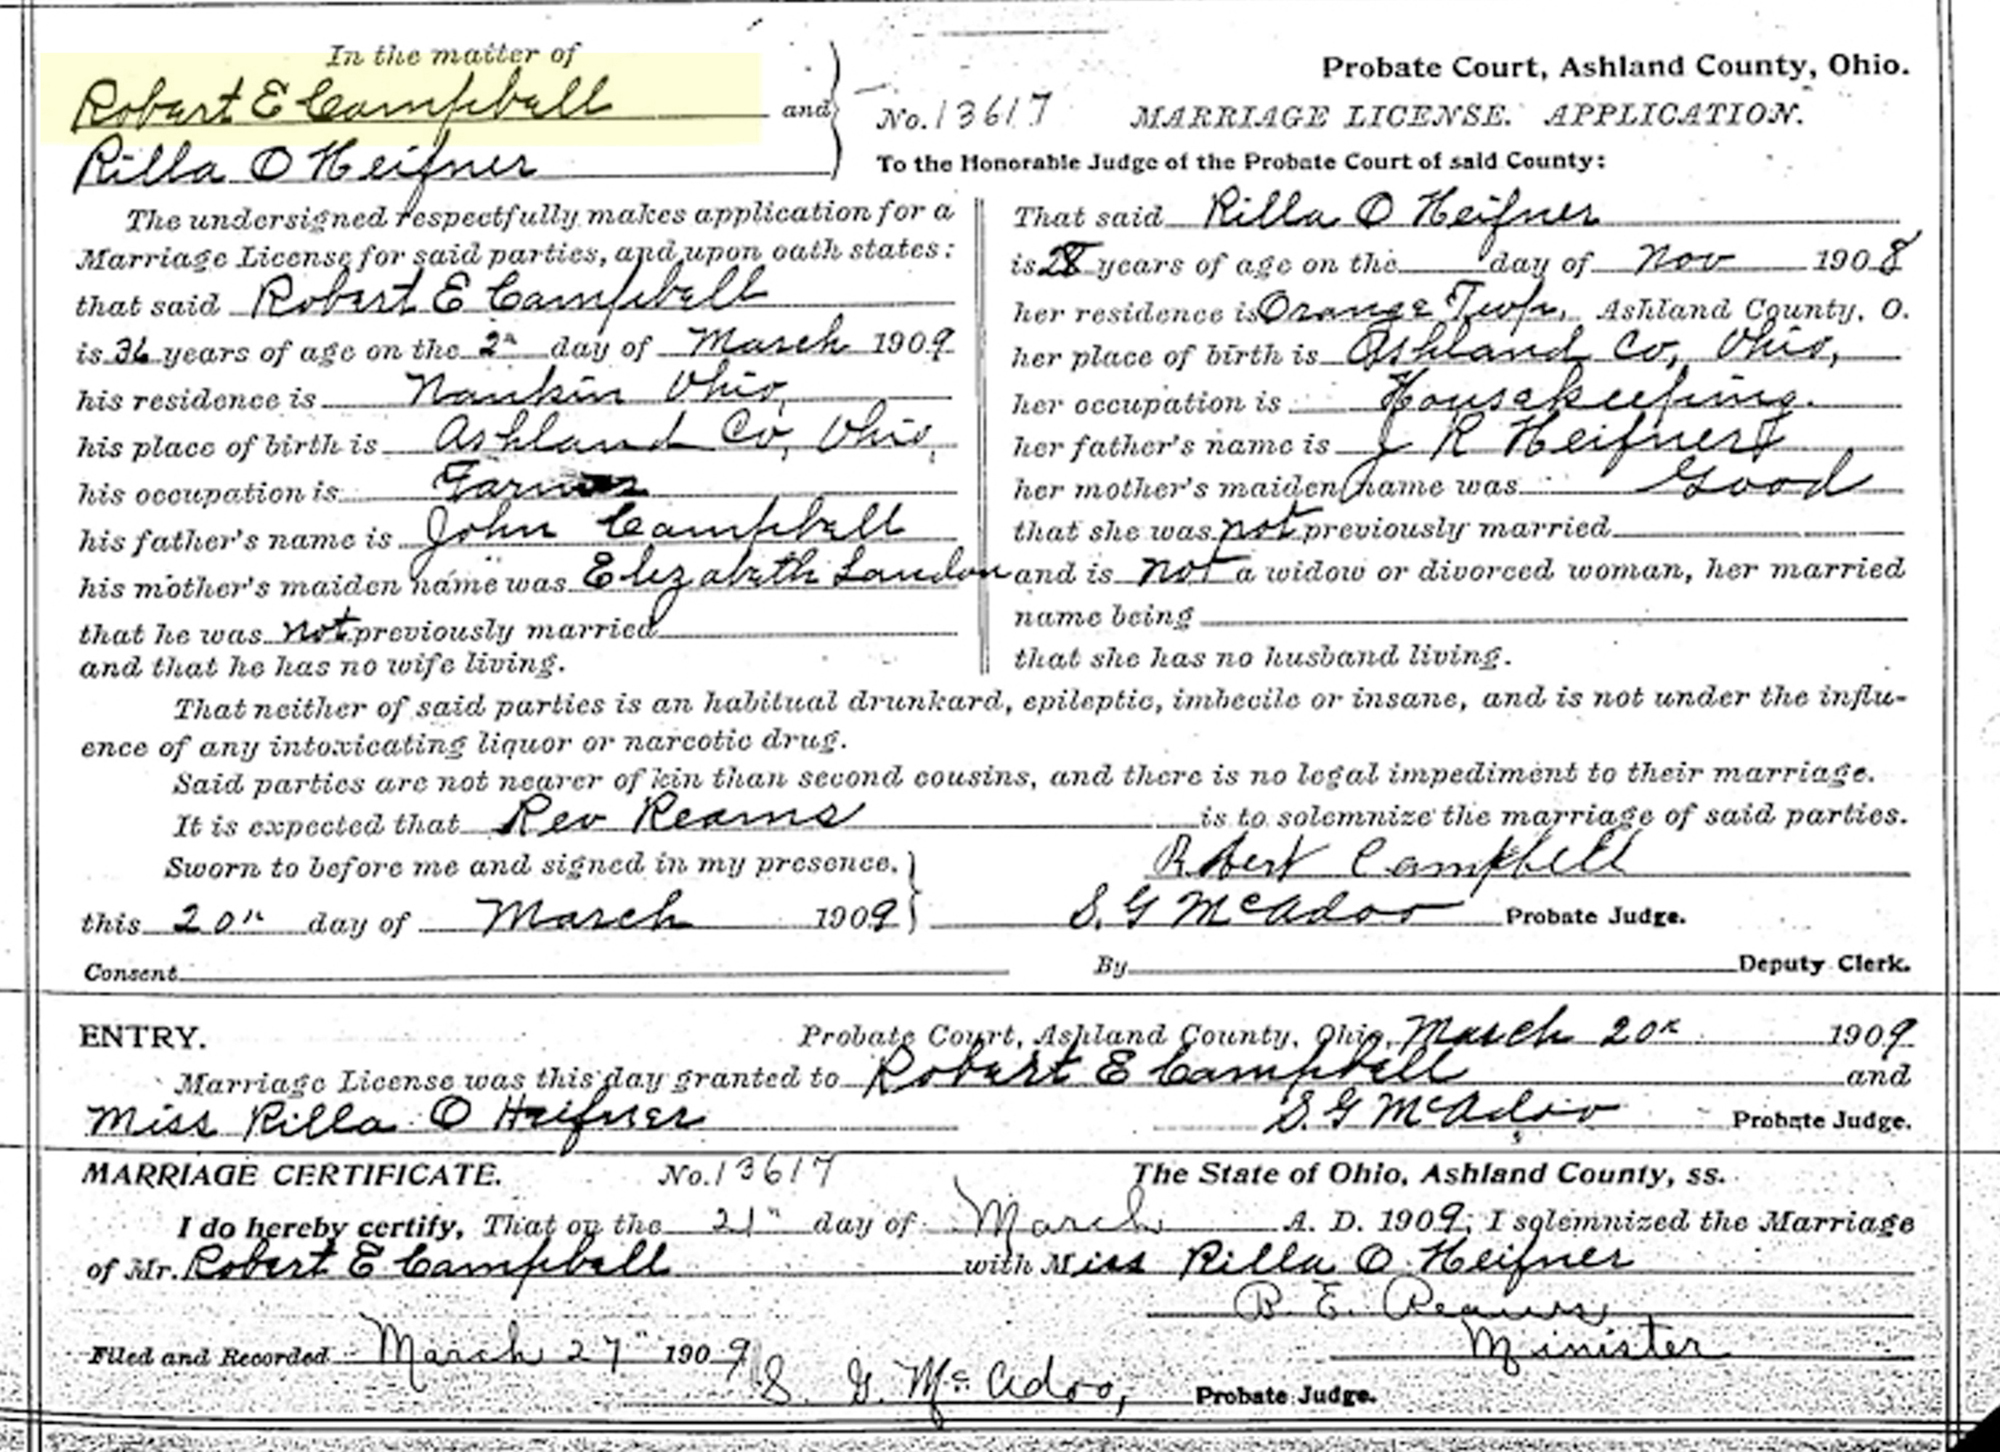 In the matter of
Robert E Campbell and
Rilla O Heifner
No. 13617
Probate Court, Ashland County, Ohio.
MARRIAGE LICENSE. APPLICATION.
To the Honorable Judge of the Probate Court of said County:
The undersigned respectfully makes application for a
Marriage License for said parties, and upon oath states:
that said Robert E Campbell
is 36 years of age on the 2" day of March 1909
his residence is Nankin Ohio,
his place of birth is Ashland Co, Ohio,
his occupation is Farmer
his father's name is John Campbell
his mother's maiden name was Elizabeth Landon
that he was not previously married
and that he has no wife living.
That said Rilla O Heifner
is 28 years of age on the day of Nov 1908
her residence is Orange Twp, Ashland County, O.
her place of birth is Ashland Co, Ohio,
her occupation is Housekeeping.
her father's name is J R Heifner
her mother's maiden name was Good
that she was not previously married
and is not a widow or divorced woman, her married
name being
that she has no husband living.
That neither of said parties is an habitual drunkard, epileptic, imbecile or insane, and is not under the influ-
ence of any intoxicating liquor or narcotic drug.
Said parties are not nearer of kin than second cousins, and there is no legal impediment to their marriage.
It is expected that Rev Reams is to solemnize the marriage of said parties.
Sworn to before me and signed in my presence. Robert Campbell
this 20th day of March 1909 S. G McAdoo Probate Judge.
Consent By Deputy Clerk.
ENTRY. Probate Court, Ashland County, Ohio, March 20th 1909
Marriage License was this day granted to Robert E Campbell and
Miss Rilla O Heifner S. G McAdoo Probate Judge.
MARRIAGE CERTIFICATE. No. 13617 The State of Ohio, Ashland County, ss.
I do hereby certify, That on the 21" day of March A. D. 1909, I solemnized the Marriage
of Mr. Robert E Campbell with Miss Rilla O Heifner
R. E. Reams
Minister
Filed and Recorded March 27" 1909
S. G. McAdoo, Probate Judge.